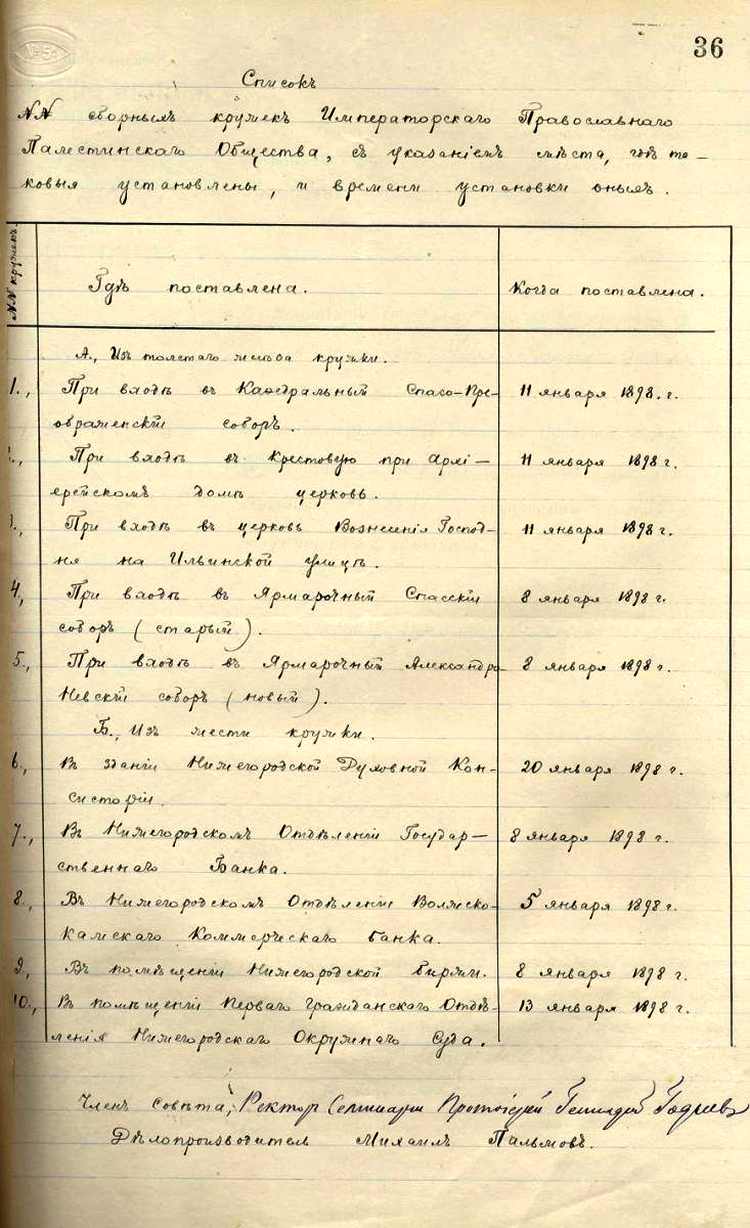 36
Списокъ
NN сборныхъ кружекъ Императорскаго Православнаго
Палестинскаго Общества, съ указаніемъ мѣста, гдѣ та-
ковыя установлены, и времени установки оныхъ.
NN кружекъ.
Гдѣ поставлена.
Когда поставлена.
А., Изъ толстаго желѣза кружки.
1., При входѣ въ Кафедральный Спасо-Пре- 11 января 1898. г.
ображенскій соборъ.
При входѣ въ Крестовую при Архі- 11 января 1898 г.
ерейскомъ домѣ церковь.
3., При входѣ въ церковь Вознесенія Господ- 11 января 1898 г.
ня на Ильинской улицѣ.
4., При входѣ въ Ярмарочный Спасскій 8 января 1898 г.
соборъ (старый).
5., При входѣ въ Ярмарочный Александро 8 января 1898 г.
Невскій соборъ (новый).
Б., Изъ жести кружки.
6., Въ зданіи Нижегородской Духовной Кон- 20 января 1898 г.
систоріи.
7., Въ Нижегородскомъ Отдѣленіи Государ- 8 января 1898 г.
ственнаго Банка.
8., Въ Нижегородскомъ Отдѣленіи Волжско- 5 января 1898 г.
Камскаго Коммерческаго банка.
9., Въ помѣщеніи Нижегородской биржи. 8 января 1898 г.
10., Въ помѣщеніи Перваго Гражданскаго Отдѣ- 13 января 1898 г.
ленія Нижегородскаго Окружнаго Суда.
Членъ совѣта, Ректоръ Семинаріи Протоіерей Геннадій Годневъ
Дѣлопроизводитель Михаилъ Пальмовъ.